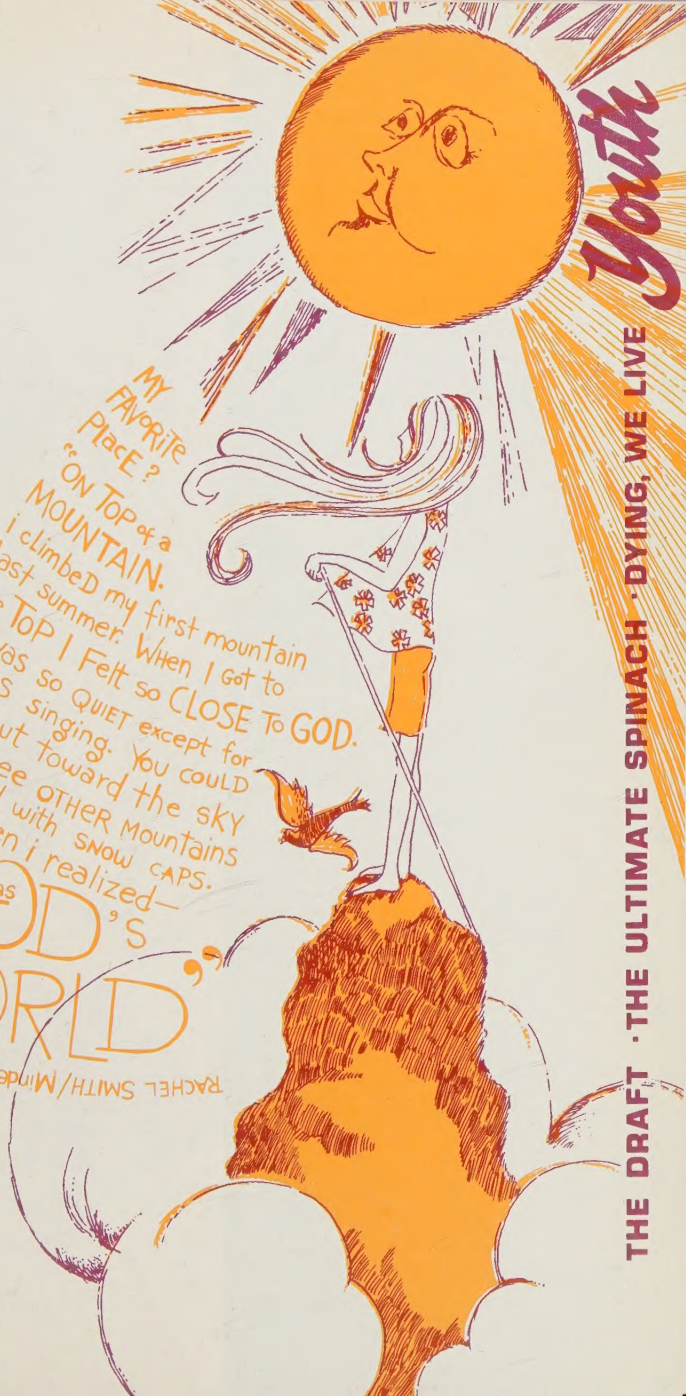 Youth
THE DRAFT · THE ULTIMATE SPINACH · DYING, WE LIVE
MY
FAVORITE
PlacE?
"ON TOP of a
MOUNTAIN.
i climbeD my first mountain
last summer. WHen I Got to
TOP I Felt so CLOSE To GOD.
was so QUIET except for
singing. You COULD
toward the sky
OTHER Mountains
with SNOW CAPS.
i realized—
GOD'S
WORLD"
RACHEL SMITH/